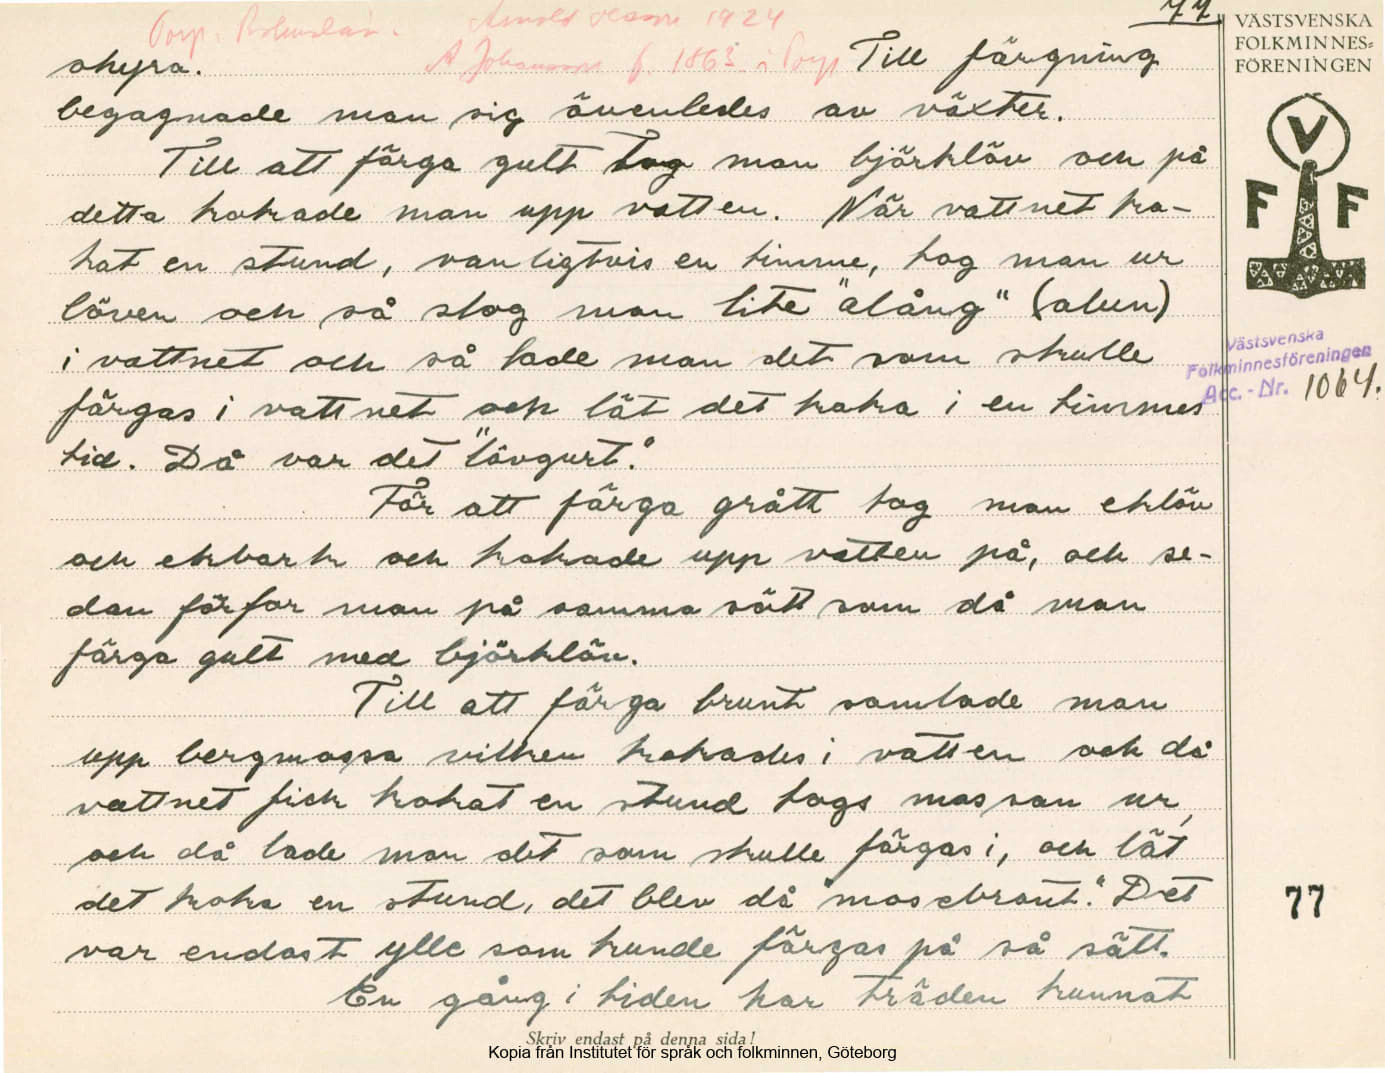 77
Torp. Bohuslän. Arnold Olsson 1924
A. Johansson f. 1863 i Torp
skyra. Till färgning
begagnade man sig ävenledes av växter.
Till att färga gult tog man björklöv och på
detta kokade man upp vatten. När vattnet ko-
kat en stund, vanligtvis en timme, tog man ur
löven och så slog man lite "alång" (alun)
i vattnet och så lade man det som skulle
färgas i vattnet och lät det koka i en timmes
tid. Då var det "lövgurt."
För att färga grått tog man eklöv
och ekbark och kokade upp vatten på, och se-
dan förfor man på samma sätt som då man
färga gult med björklöv.
Till att färga brunt samlade man
upp bergmossa vilken kokades i vatten och då
vattnet fick kokat en stund togs mossan ur,
och då lade man det som skulle färgas i, och lät
det koka en stund, det blev då "mosebront." Det
var endast ylle som kunde färgas på så sätt.
En gång i tiden har träden kunnat
Skriv endast på denna sida!
Kopia från Institutet för språk och folkminnen, Göteborg
VÄSTSVENSKA
FOLKMINNES-
FÖRENINGEN
V
F F
Västsvenska
Folkminnesföreningen
Acc.-Nr. 1064.
77